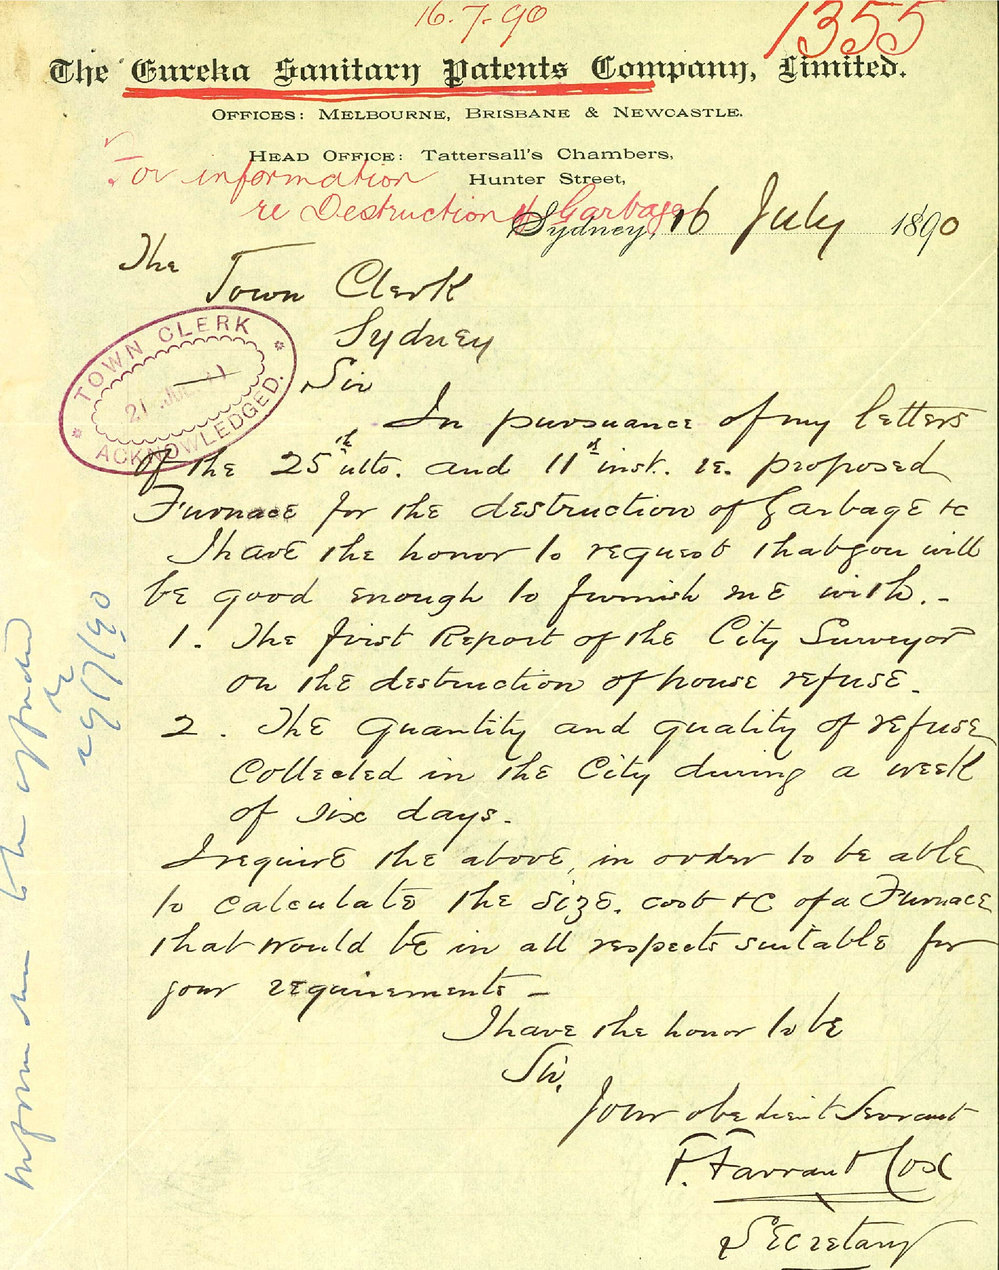 16.7.90
1355
The Eureka Sanitary Patents Company, Limited.
Offices: Melbourne, Brisbane & Newcastle.
Head Office: Tattersall's Chambers,
Hunter Street,
For information
re Destruction of Garbage
Sydney, 16 July 1890
The
Town Clerk
Sydney
Sir
TOWN CLERK
21 JUL
ACKNOWLEDGED.
In pursuance of my letters
of the 25th ulto. and 11th inst. re. proposed
Furnace for the destruction of Garbage &c
I have the honor to request that you will
be good enough to furnish me with.-
1. The first Report of the City Surveyor
on the destruction of house refuse.
2. The quantity and quality of refuse
collected in the City during a week
of six days.
I require the above, in order to be able
to calculate the size. cost &c of a Furnace
that would be in all respects suitable for
your requirements -
I have the honor to be
Sir,
Your obedient Servant
F. Farrant Cox
Secretary